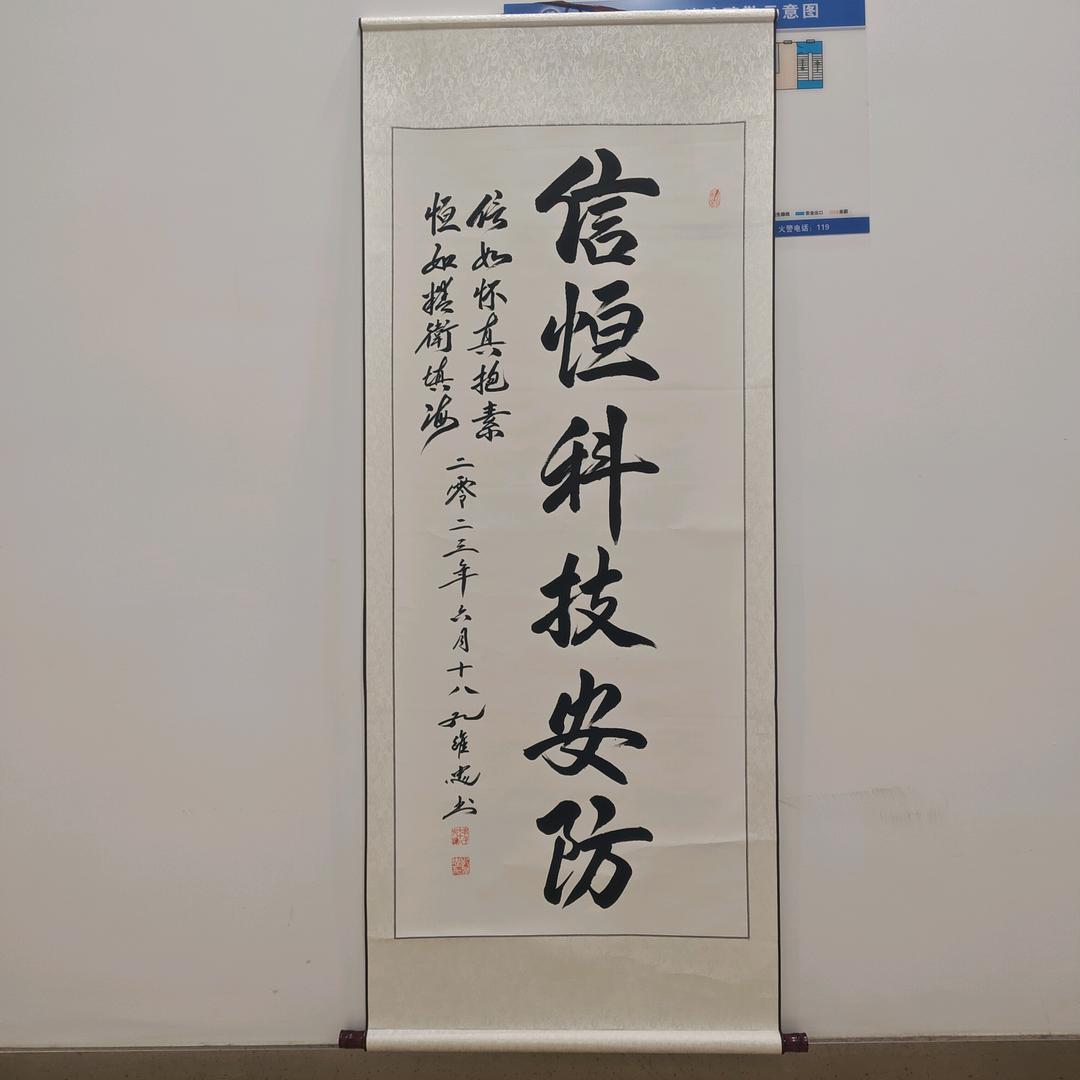 信恒科技安防
信如怀真抱素
恒如精衛填海
二零二三年六月十八孔維忠书
示意图
安全出口
火警电话：119